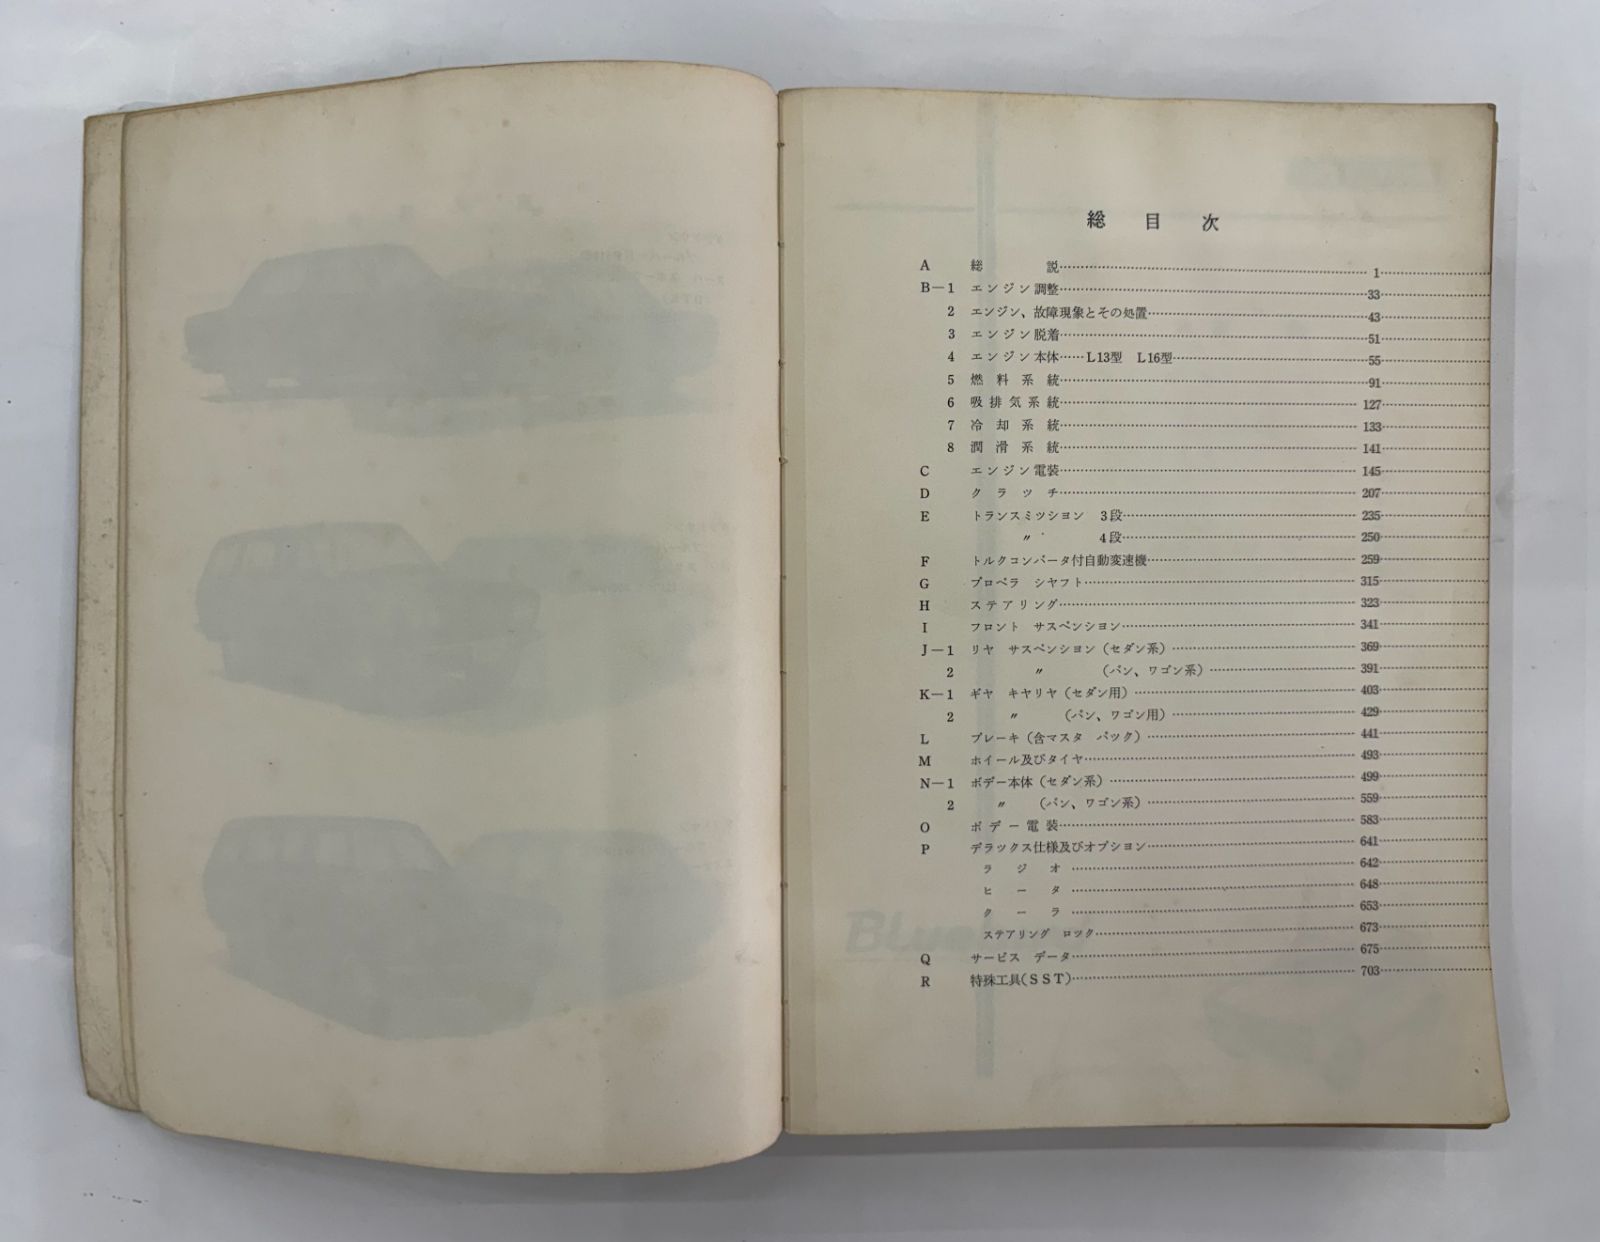 総目次
A 総説 1
B－1 エンジン調整 33
2 エンジン、故障現象とその処置 43
3 エンジン脱着 51
4 エンジン本体……L13型 L16型 55
5 燃料系統 91
6 吸排気系統 127
7 冷却系統 133
8 潤滑系統 141
C エンジン電装 145
D クラッチ 207
E トランスミツシヨン 3段 235
〃 4段 250
F トルクコンバータ付自動変速機 259
G プロペラ シヤフト 315
H ステアリング 323
I フロント サスペンシヨン 341
J－1 リヤ サスペンシヨン（セダン系） 369
2 〃 （バン、ワゴン系） 391
K－1 ギヤ キヤリヤ（セダン用） 403
2 〃 （バン、ワゴン用） 429
L ブレーキ（含マスタ バツク） 441
M ホイール及びタイヤ 493
N－1 ボデー本体（セダン系） 499
2 〃 （バン、ワゴン系） 559
O ボデー電装 583
P デラックス仕様及びオプシヨン 641
ラジオ 642
ヒータ 648
クーラ 653
ステアリング ロツク 673
Q サービス データ 675
R 特殊工具（SST） 703